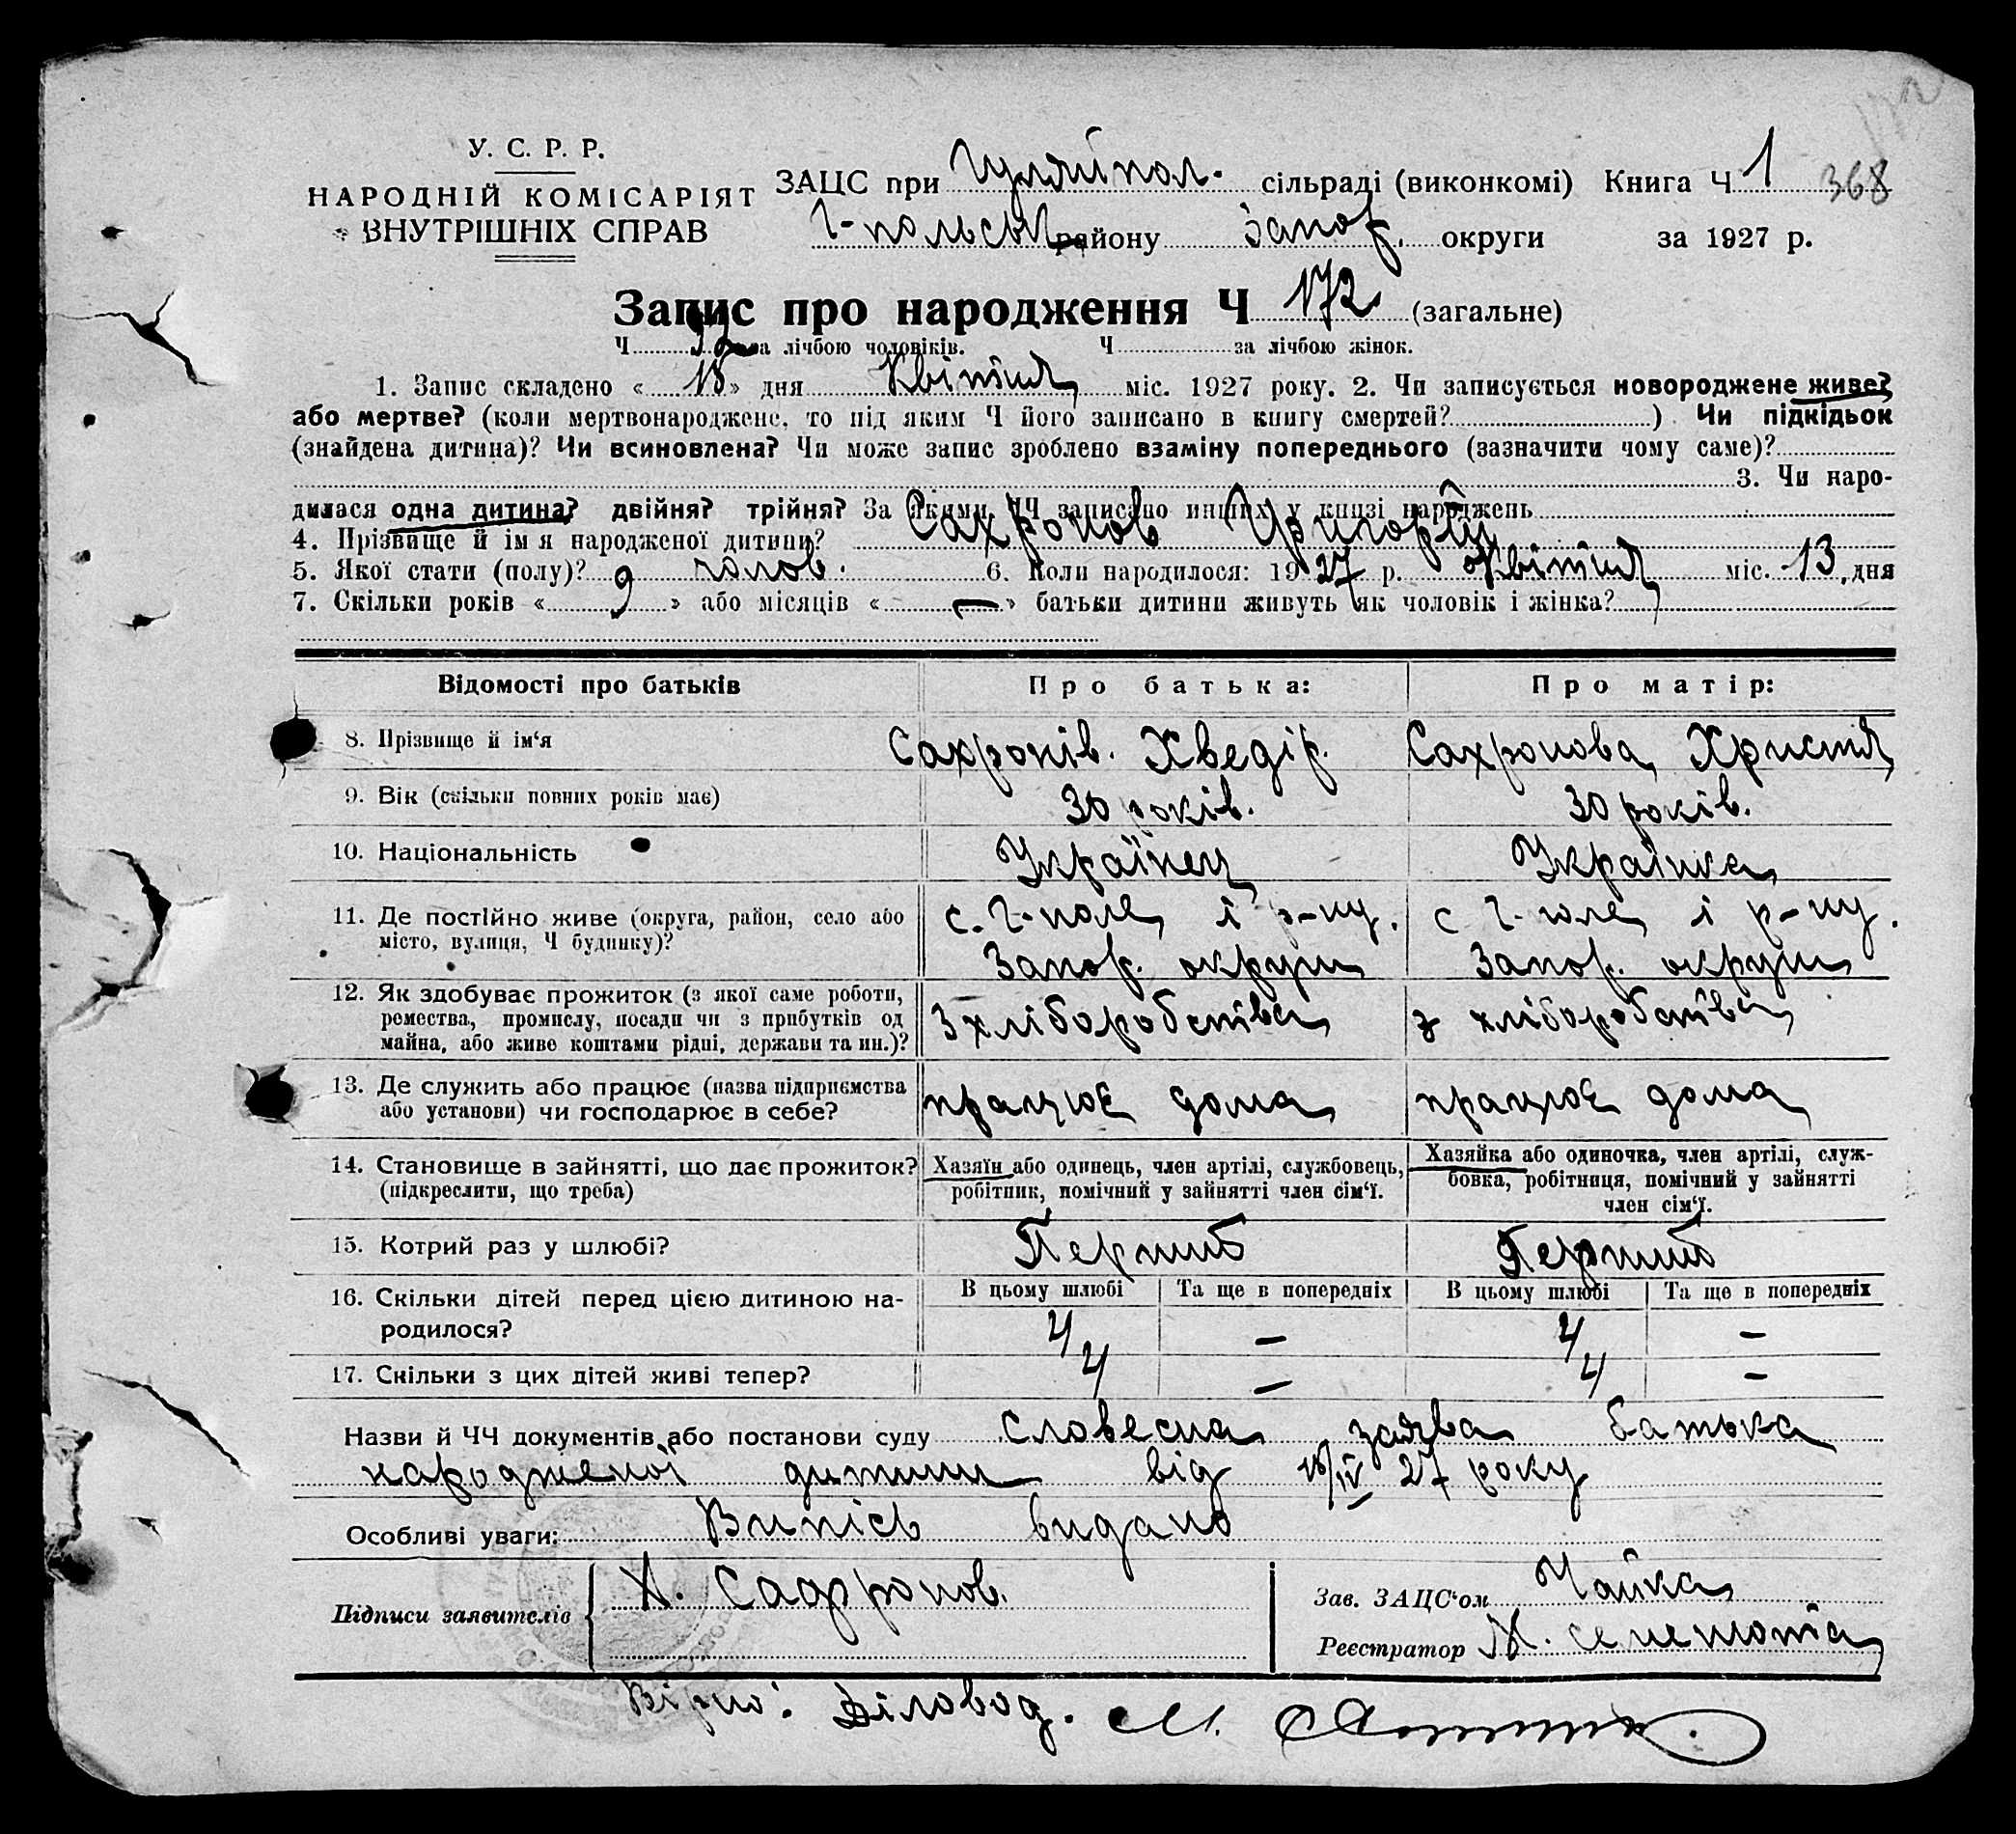 У. С. Р. Р.
НАРОДНІЙ КОМІСАРІЯТ
ВНУТРІШНІХ СПРАВ
ЗАЦС при Гуляйпол. сільраді (виконкомі) Книга Ч 1 368
Г-польськ району Запор. округи за 1927 р.
Запис про народження Ч 172 (загальне)
Ч 92 за лічбою чоловіків. Ч за лічбою жінок.
1. Запис складено « 18 » дня Квітня міс. 1927 року. 2. Чи записується новороджене живе?
або мертве? (коли мертвонароджене, то під яким Ч його записано в книгу смертей? ) Чи підкідьок
(знайдена дитина)? Чи всиновлена? Чи може запис зроблено взаміну попереднього (зазначити чому саме)?
3. Чи наро-
дилася одна дитина? двійня? трійня? За якими ЧЧ записано инших у книзі народжень
4. Прізвище й ім я народженої дитини? Сахронов Григорій
5. Якої стати (полу)? чолов. 6. Коли народилося: 1927 р. Квітня міс. 13 дня
7. Скільки років « 9 » або місяців « — » батьки дитини живуть як чоловік і жінка?
Відомості про батьків Про батька: Про матір:
8. Прізвище й ім‘я Сахронів. Хведір. Сахронова Христя
9. Вік (скільки повних років має) 30 років. 30 років.
10. Національність Українец Українка
11. Де постійно живе (округа, район, село або місто, вулиця, Ч будинку)? с. Г-поле і р-ну. Запор. округи с Г-поле і р-ну. Запор. округи
12. Як здобуває прожиток (з якої саме роботи, ремества, промислу, посади чи з прибутків од майна, або живе коштами рідні, держави та ин.)? З хліборобства з хліборобства
13. Де служить або працює (назва підприємства або установи) чи господарює в себе? працює дома працює дома
14. Становище в зайнятті, що дає прожиток? (підкреслити, що треба) Хазяїн або одинець, член артілі, службовець, робітник, помічний у зайнятті член сім‘ї. Хазяйка або одиночка, член артілі, служ-бовка, робітниця, помічний у зайнятті член сім‘ї.
15. Котрий раз у шлюбі? Перший Перший
16. Скільки дітей перед цією дитиною на-родилося? В цьому шлюбі Та ще в попередніх В цьому шлюбі Та ще в попередніх
4 — 4 —
17. Скільки з цих дітей живі тепер? 4 — 4 —
Назви й ЧЧ документів або постанови суду Словесна заява батька
народженої дитини від 18/IV 27 року
Особливі уваги: Випісь видано
Підписи заявителів Х. Сафронов. Зав. ЗАЦС‘ом Чайка
Реєстратор
Вірно: Діловод. М.